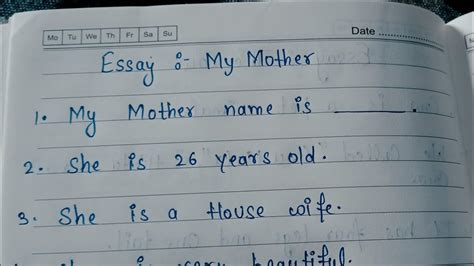 Mo Tu We Th Fr Sa Su
Date
Essay :- My Mother
1. My Mother name is ______.
2. She is 26 years old.
3. She is a House wife.
beautiful.